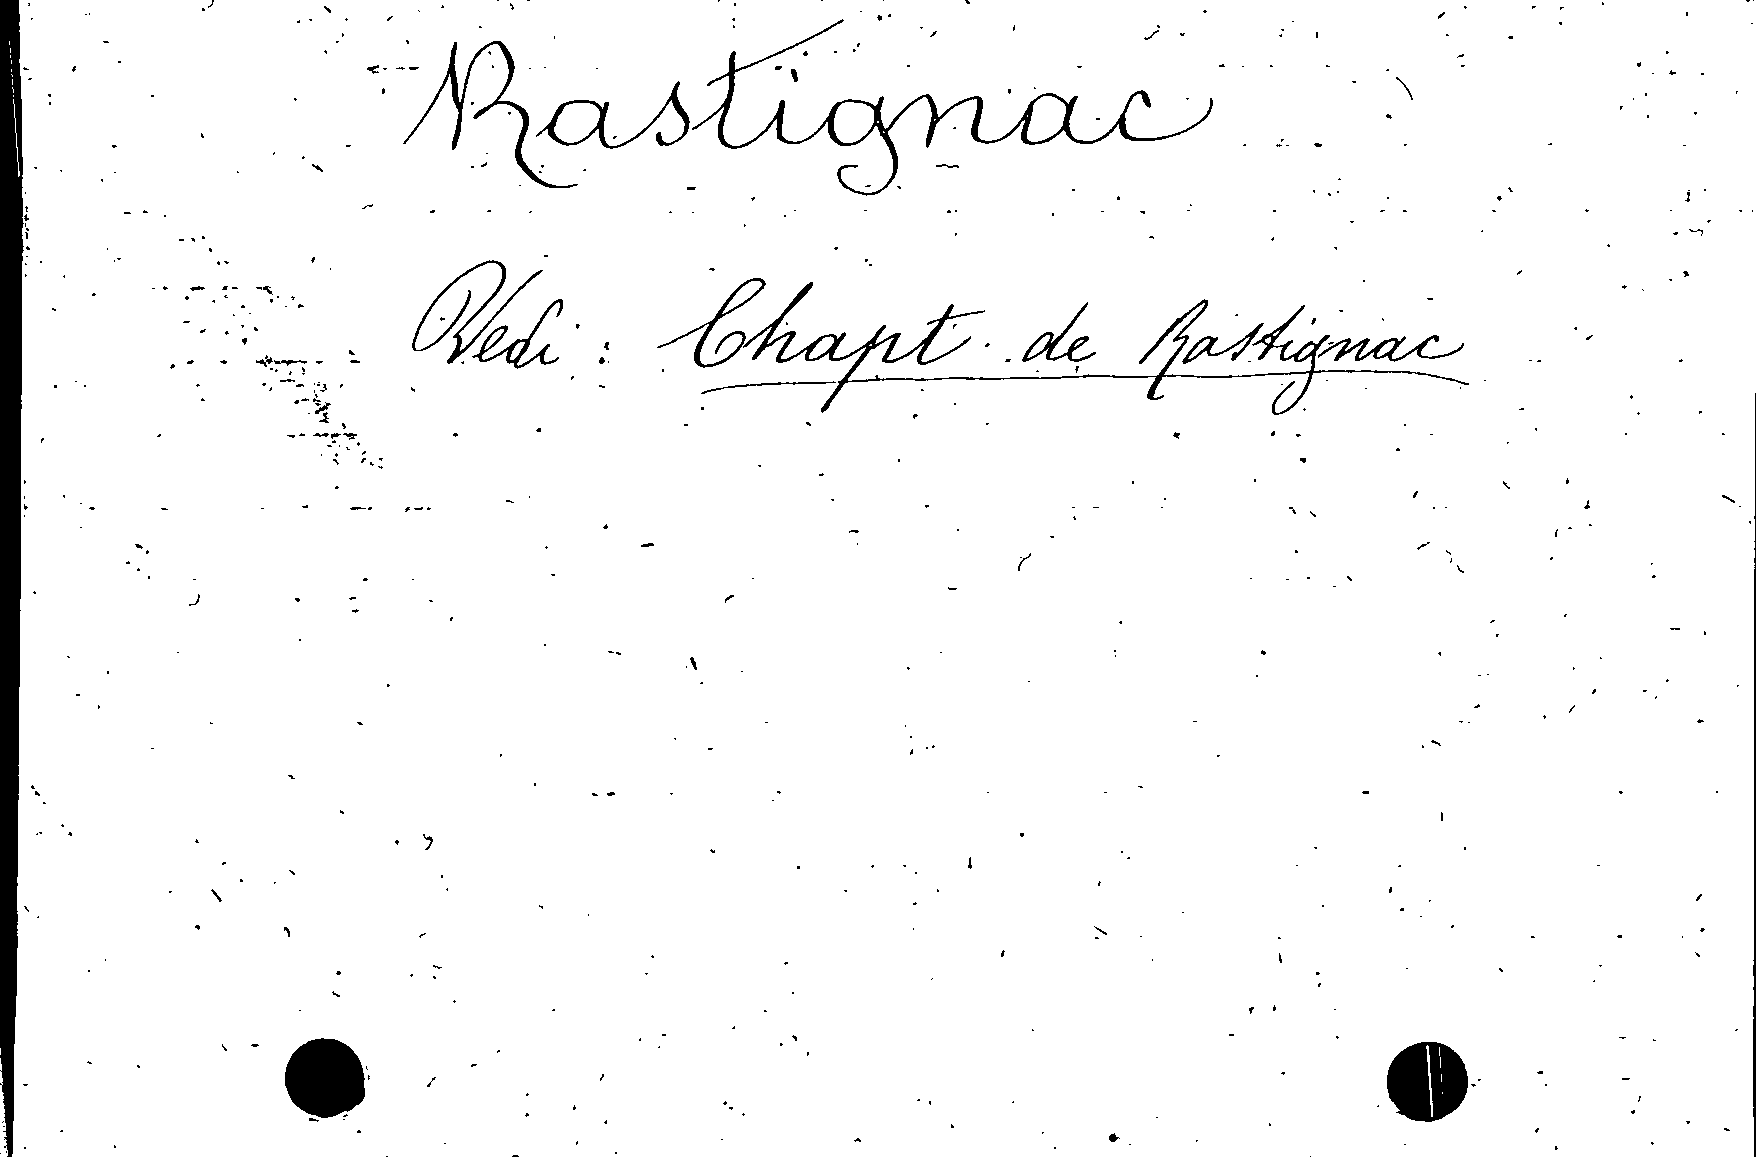 Rastignac
Vedi: Chapt de Rastignac